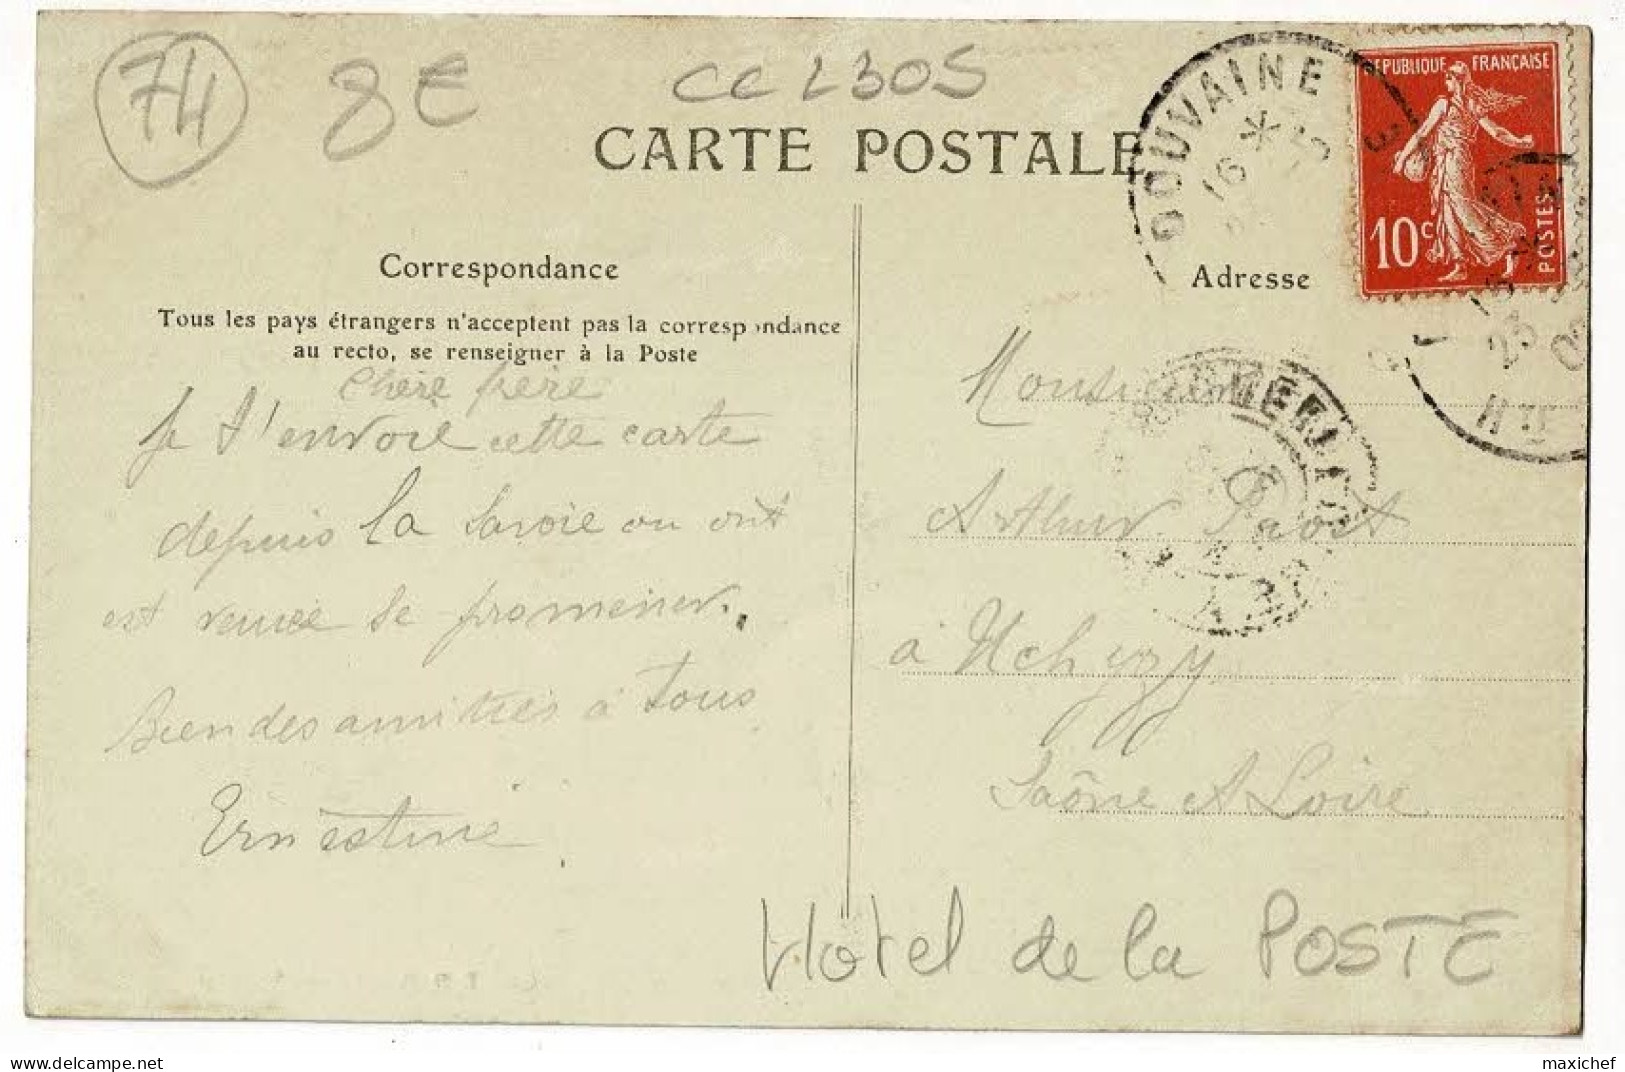 74
8€
CC 2305
CARTE POSTALE
DOUVAINE
16
RÉPUBLIQUE FRANÇAISE
10c
POSTES
Correspondance
Tous les pays étrangers n'acceptent pas la correspondance
au recto, se renseigner à la Poste
Chère frère
Je t'envoie cette carte
depuis la Savoie ou ont
est venue se promener.
Bien des amitiés à tous
Ernestine
Adresse
Monsieur
Arthur
à Uchizy
Saône et Loire
Hotel de la POSTE
delcampe.net
maxichef